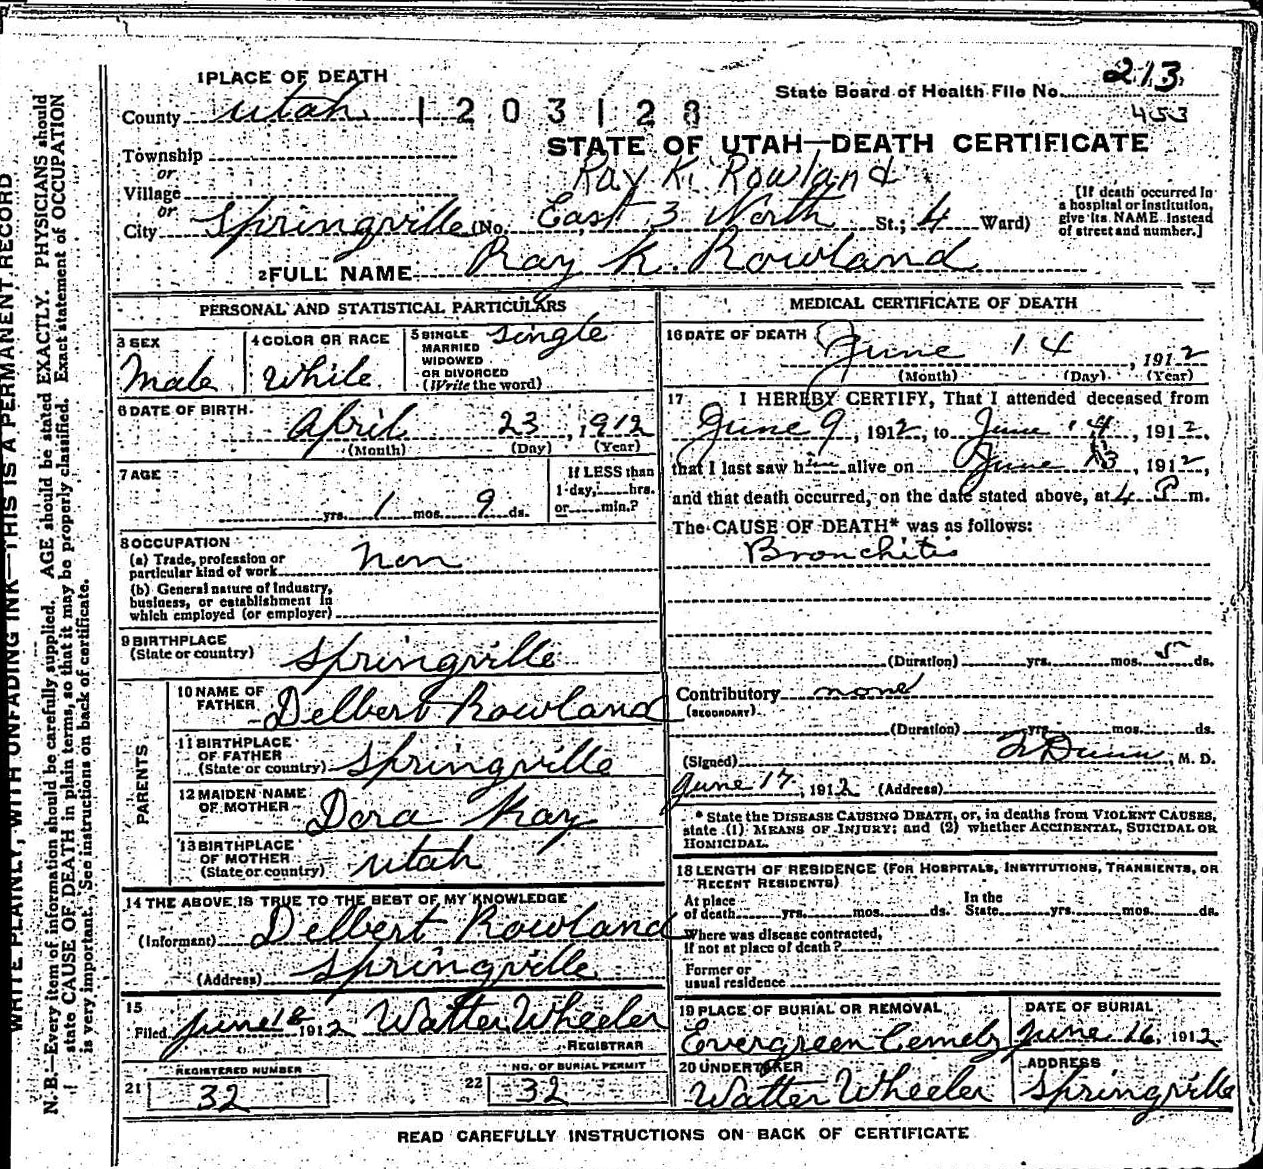 1 PLACE OF DEATH
State Board of Health File No. 213
453
County Utah 1203128
STATE OF UTAH—DEATH CERTIFICATE
Township
or
Ray K. Rowland
Village
or
City Springville (No. East 3 North St.; 4 Ward)
[If death occurred in
a hospital or institution,
give its NAME instead
of street and number.]
2 FULL NAME Ray K. Rowland
PERSONAL AND STATISTICAL PARTICULARS
3 SEX
Male
4 COLOR OR RACE
White
5 SINGLE
MARRIED
WIDOWED
OR DIVORCED
(Write the word)
Single
6 DATE OF BIRTH
April 23, 1912
(Month) (Day) (Year)
7 AGE
yrs. 1 mos. 9 ds.
If LESS than
1 day, hrs.
or min.?
8 OCCUPATION
(a) Trade, profession or
particular kind of work Non
(b) General nature of Industry,
business, or establishment in
which employed (or employer)
9 BIRTHPLACE
(State or country) Springville
PARENTS
10 NAME OF
FATHER Delbert Rowland
11 BIRTHPLACE
OF FATHER
(State or country) Springville
12 MAIDEN NAME
OF MOTHER Dora Kay
13 BIRTHPLACE
OF MOTHER
(State or country) Utah
14 THE ABOVE IS TRUE TO THE BEST OF MY KNOWLEDGE
(Informant) Delbert Rowland
(Address) Springville
15
Filed June 18 1912 Walter Wheeler
REGISTRAR
REGISTERED NUMBER
21 32
NO. OF BURIAL PERMIT
22 32
MEDICAL CERTIFICATE OF DEATH
16 DATE OF DEATH
June 14, 1912
(Month) (Day) (Year)
17 I HEREBY CERTIFY, That I attended deceased from
June 9, 1912, to June 14, 1912,
that I last saw him alive on June 13, 1912,
and that death occurred, on the date stated above, at 4 P m.
The CAUSE OF DEATH* was as follows:
Bronchitis
(Duration) yrs. mos. 5 ds.
Contributory none
(SECONDARY)
(Duration) yrs. mos. ds.
(Signed) Dunn, M. D.
June 17, 1912 (Address)
* State the DISEASE CAUSING DEATH, or, in deaths from VIOLENT CAUSES,
state (1) MEANS OF INJURY; and (2) whether ACCIDENTAL, SUICIDAL OR
HOMICIDAL.
18 LENGTH OF RESIDENCE (FOR HOSPITALS, INSTITUTIONS, TRANSIENTS, OR
RECENT RESIDENTS)
At place
of death yrs. mos. ds.
In the
State yrs. mos. ds.
Where was disease contracted,
if not at place of death?
Former or
usual residence
19 PLACE OF BURIAL OR REMOVAL
Evergreen Cemety
DATE OF BURIAL
June 16, 1912
20 UNDERTAKER
Walter Wheeler
ADDRESS
Springville
READ CAREFULLY INSTRUCTIONS ON BACK OF CERTIFICATE
WRITE PLAINLY, WITH UNFADING INK—THIS IS A PERMANENT RECORD
N. B.—Every item of information should be carefully supplied. AGE should be stated EXACTLY. PHYSICIANS should
state CAUSE OF DEATH in plain terms, so that it may be properly classified. Exact statement of OCCUPATION
is very important. See instructions on back of certificate.